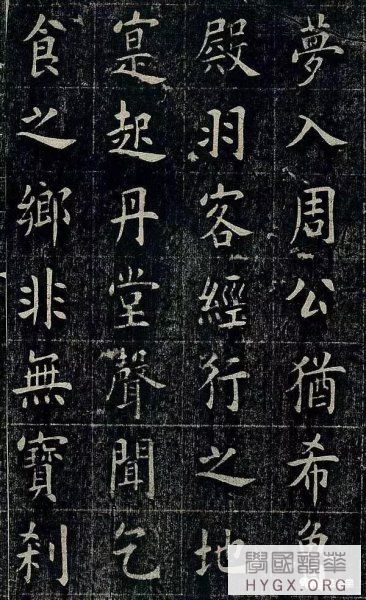 夢入周公猶希
殿羽客經行之地
寔起丹堂聲聞乞
食之鄉非無寶刹
華韻國學
HYGX.ORG